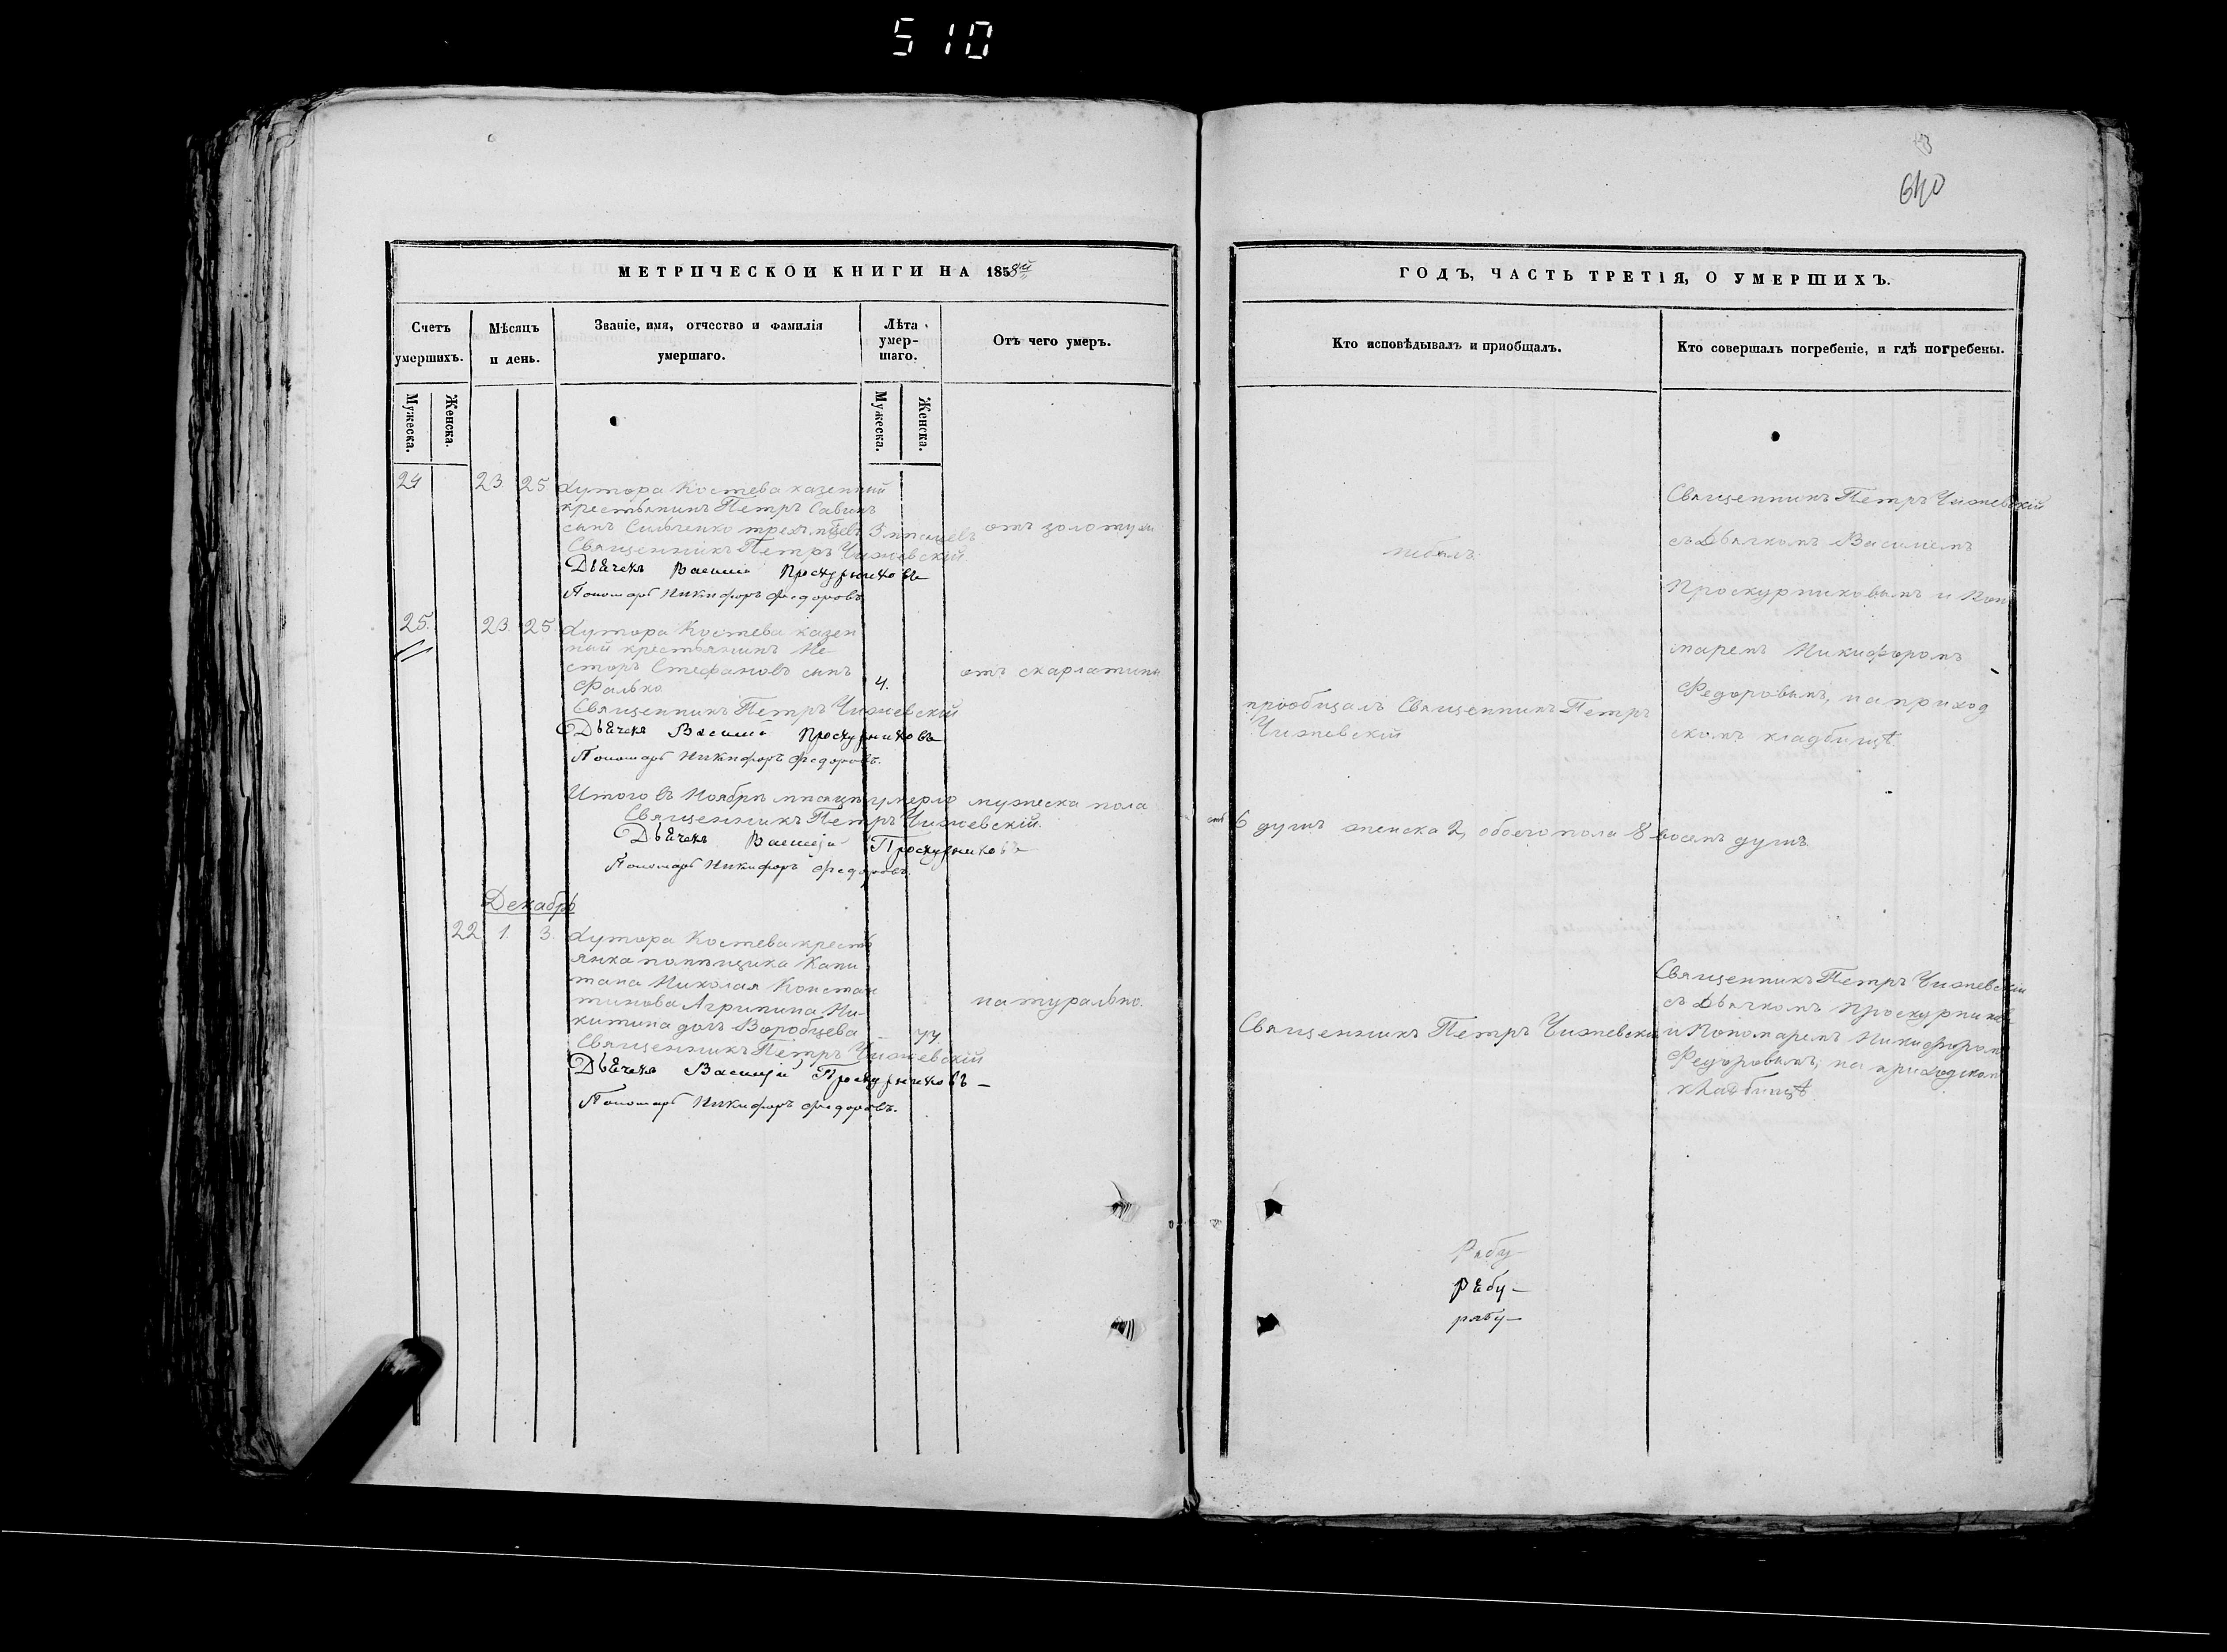 510
640
МЕТРИЧЕСКОЙ КНИГИ НА 1858й
Счетъ умершихъ.
Мѣсяцъ и день.
Званіе, имя, отчество и фамилія умершаго.
Лѣта умер-
шаго.
Отъ чего умеръ.
Мужеска.
Женска.
Мужеска.
Женска.
24 23. 25 Хутора Костева казенный
крестьянинъ Петръ Савинъ
сынъ Сильченко трехъ 3 мѣсяцевъ отъ золотухи
Священникъ Петръ Чижевскій
Дьячекъ Василій Проскурниковъ
Пономарь Никифоръ Федоровъ
25. 23. 25. Хутора Костева казен
ный крестьянинъ Не
сторъ Стефановъ сынъ отъ скарлатины
Фалько 4.
Священникъ Петръ Чижевскій
Дьячекъ Василій Проскурниковъ
Пономарь Никифоръ Федоровъ.
Итого въ Ноябрѣ мѣсяцѣ умерло мужеска пола
Священникъ Петръ Чижевскій.
Дьячекъ Василій Проскурниковъ
Пономарь Никифоръ Федоровъ.
Декабрь
22 1. 3. Хутора Костева кресть
янка помѣщика Капи
тана Николая Констан
тинова Агрипина Ни- натурально.
китина дочь Воробцева 77.
Священникъ Петръ Чижевскій
Дьячекъ Василій Проскурниковъ
Пономарь Никифоръ Федоровъ.
ГОДЪ, ЧАСТЬ ТРЕТІЯ, О УМЕРШИХЪ.
Кто исповѣдывалъ и пріобщалъ.
Кто совершалъ погребеніе, и гдѣ погребены.
небылъ.
Священникъ Петръ Чижевскій
съ Дьячкомъ Василіемъ
Проскурниковымъ и Поно
маремъ Никифоромъ
Федоровымъ, на приход
скомъ кладбищѣ.
прообщалъ Священникъ Петръ
Чижевскій
6 душъ женска 2, обоего пола 8 восемъ душъ.
Священникъ Петръ Чижевскій
Священникъ Петръ Чижевскій
съ Дьячкомъ Проскурников
и Пономаремъ Никифором
Федоровымъ, на приходском
кладбищѣ.
Рабу
рѣбу
рабу